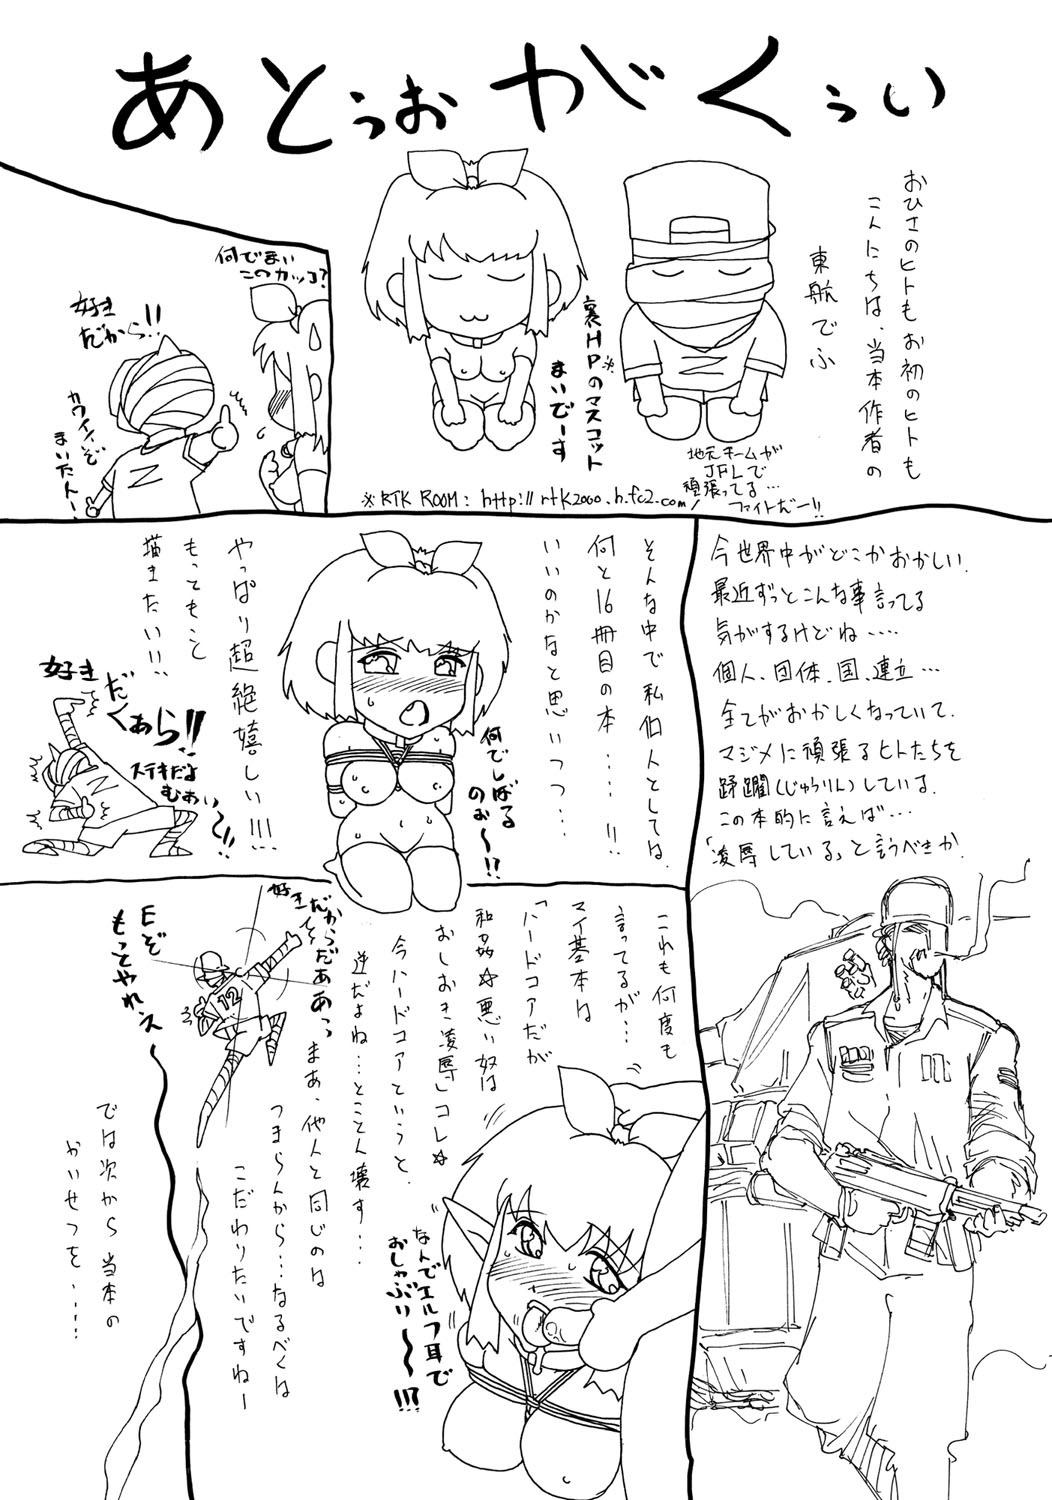 あとぅおがくぅい
おひさのヒトもお初のヒトも
こんにちは、当本作者の
東航でふ
裏HP※のマスコット
まいでーす
地元チームが
JFLで
頑張ってる…
ファイトだー!!
※RTK ROOM: http://rtk2000.h.fc2.com/
何でまい
このカッコ?
好き
だから!!
カワイイぞ
まいたんー!
今世界中がどこかおかしい。
最近ずっとこんな事言ってる
気がするけどね…‥
個人、団体、国、連立…
全てがおかしくなっていて、
マジメに頑張るヒトたちを
蹂躙(じゅうりん)している。
この本的に言えば…
「凌辱している」と言うべきか。
そんな中で私個人としては、
何と16冊目の本…‥!!
いいのかなと思いつつ…
何でしばる
のぉ〜!?
やっぱり超絶嬉しい!!!
もっともっと
描きたい!!
好き
だ
くぁら!!
ステキだよ
むぁい〜!!
これも何度も
言ってるが…
マイ基本は
「ハードコアだが
和姦☆悪い奴は
おしおき凌辱」コレ☆
今ハードコアというと、
逆だよね…とことん壊す…
なんでエルフ耳で
おしゃぶり〜〜!?
まあ、他人と同じのは
つまらんから…なるべくは
こだわりたいですねー
好きだからだぁあっ
12
Eぞ
もっとやれ、ス〜
では次から当本の
かいせつを…‥